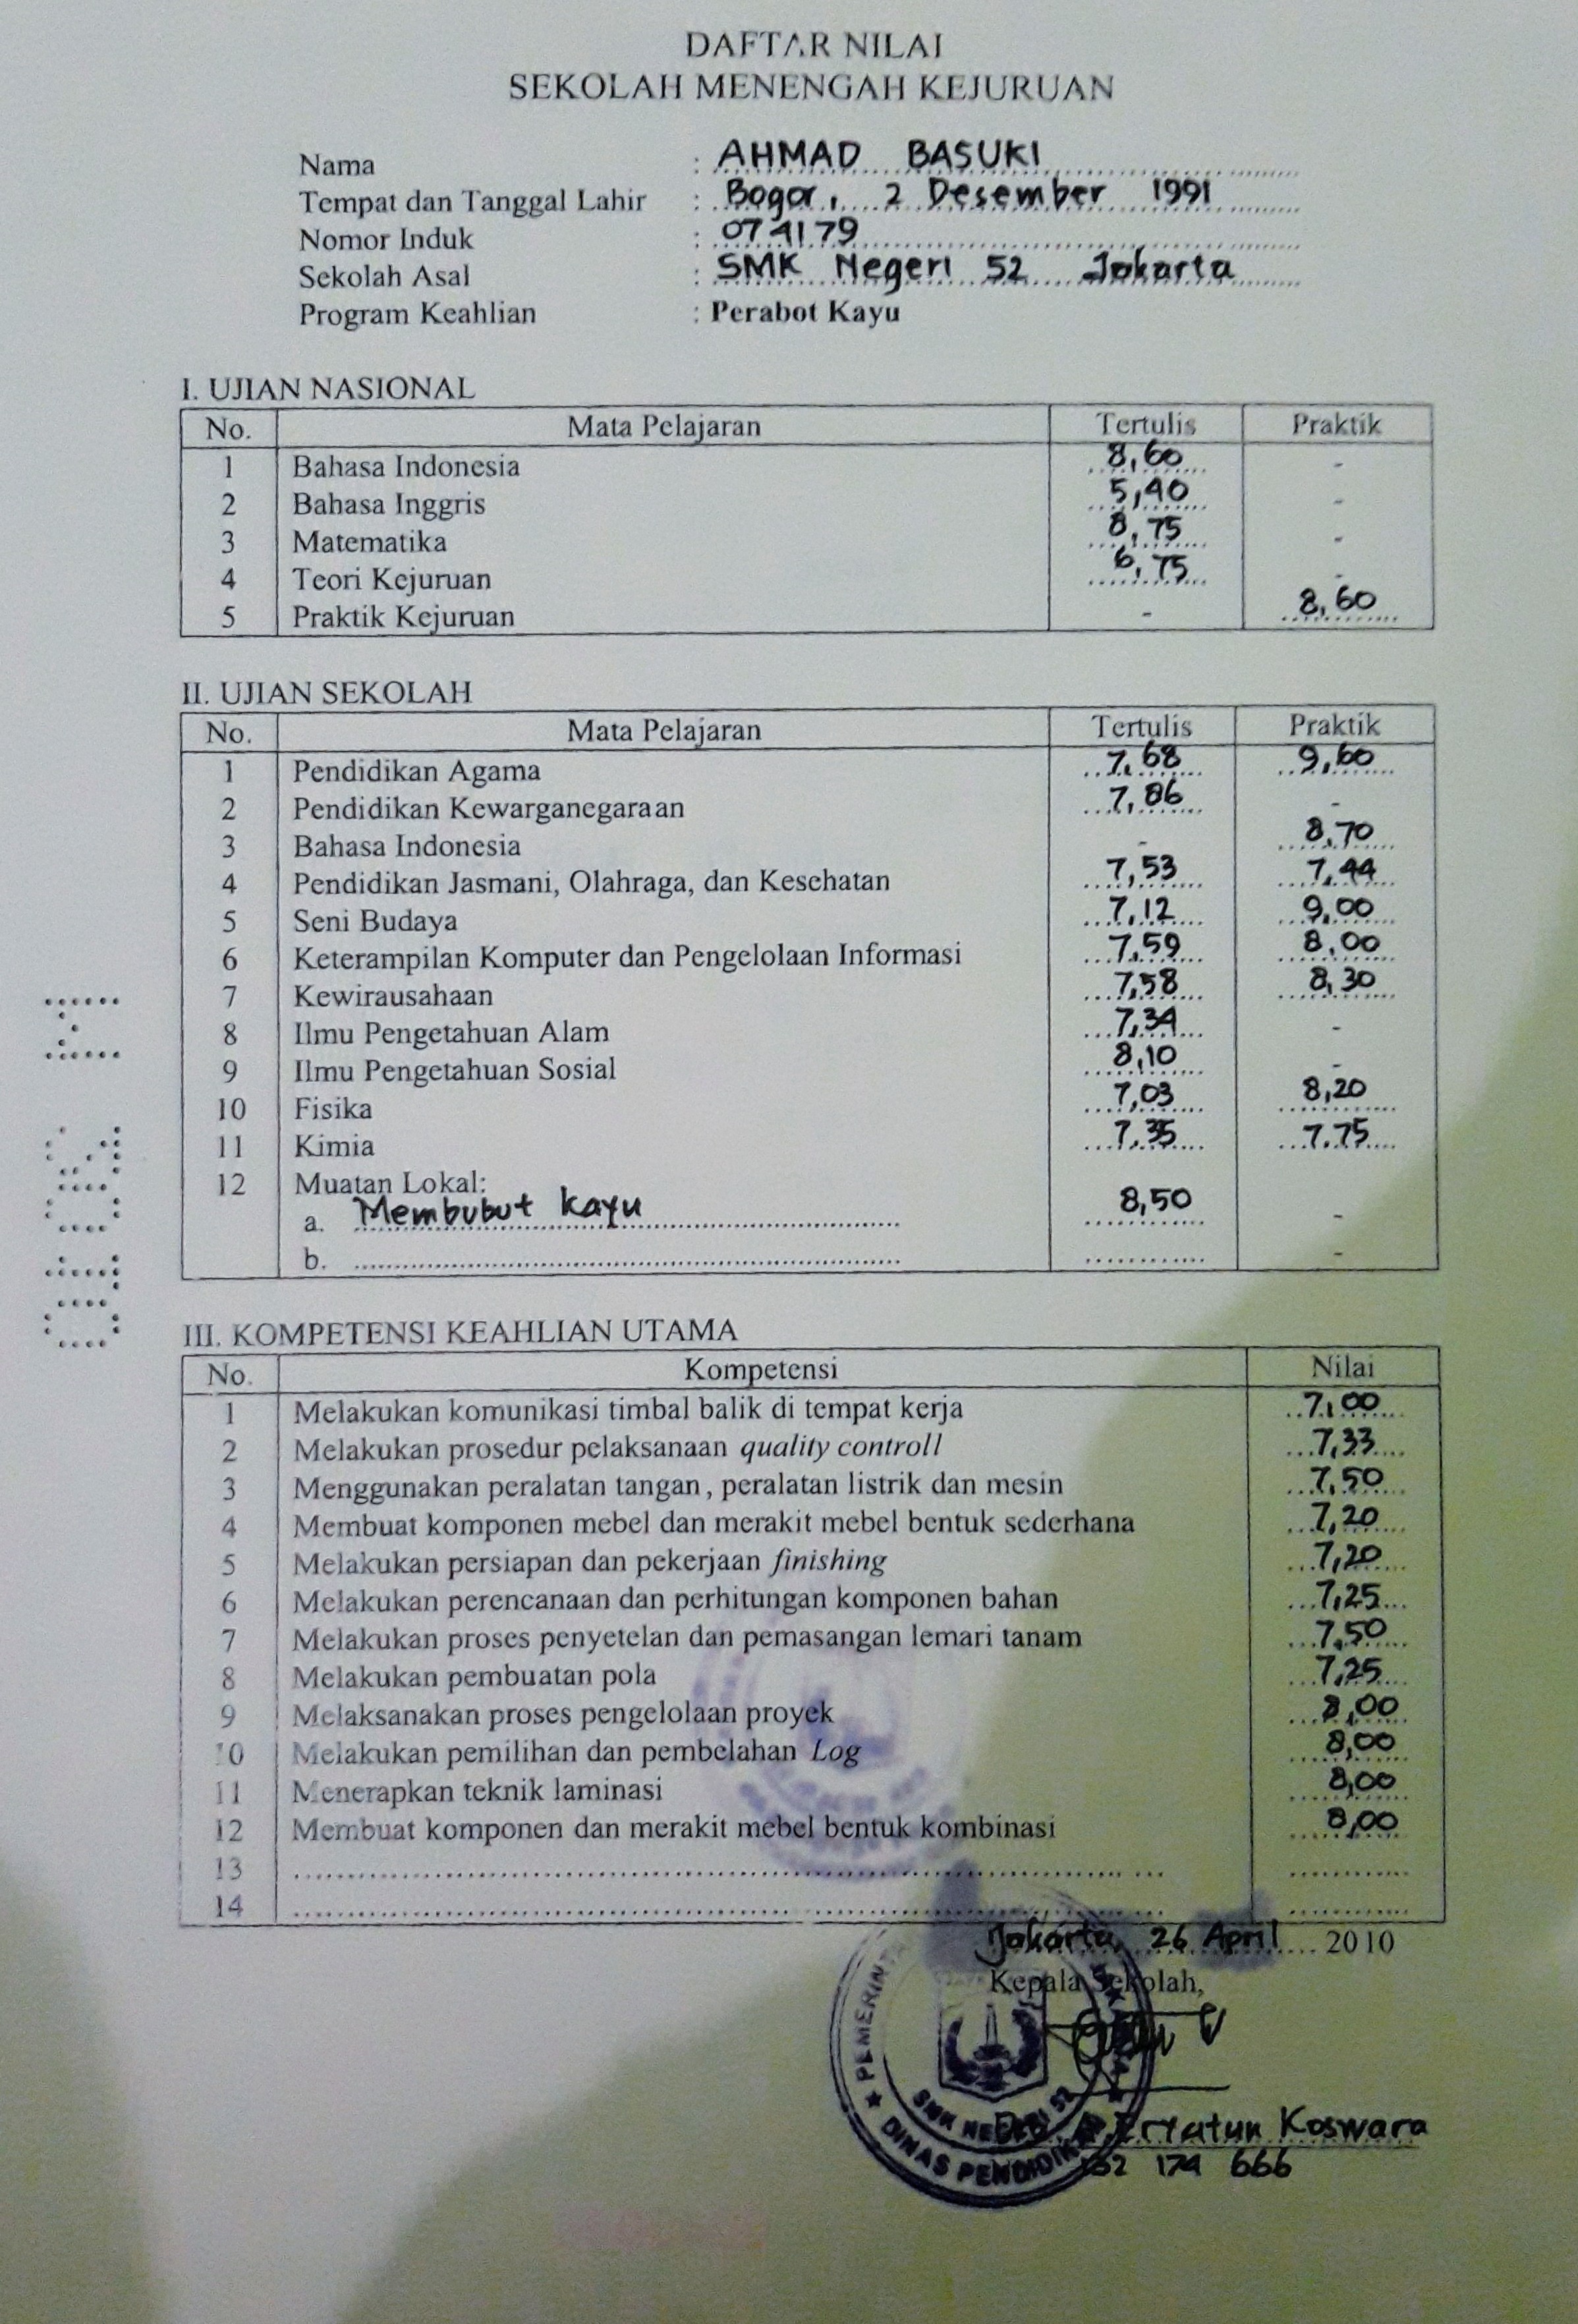 DAFTAR NILAI
SEKOLAH MENENGAH KEJURUAN
Nama : AHMAD BASUKI
Tempat dan Tanggal Lahir : Bogor, 2 Desember 1991
Nomor Induk : 074179
Sekolah Asal : SMK Negeri 52 Jakarta
Program Keahlian : Perabot Kayu
I. UJIAN NASIONAL
No. Mata Pelajaran Tertulis Praktik
1 Bahasa Indonesia 8,60 -
2 Bahasa Inggris 5,40 -
3 Matematika 8,75 -
4 Teori Kejuruan 6,75 -
5 Praktik Kejuruan - 8,60
II. UJIAN SEKOLAH
No. Mata Pelajaran Tertulis Praktik
1 Pendidikan Agama 7,68 9,60
2 Pendidikan Kewarganegaraan 7,86 -
3 Bahasa Indonesia - 8,70
4 Pendidikan Jasmani, Olahraga, dan Kesehatan 7,53 7,44
5 Seni Budaya 7,12 9,00
6 Keterampilan Komputer dan Pengelolaan Informasi 7,59 8,00
7 Kewirausahaan 7,58 8,30
8 Ilmu Pengetahuan Alam 7,34 -
9 Ilmu Pengetahuan Sosial 8,10 -
10 Fisika 7,03 8,20
11 Kimia 7,35 7,75
12 Muatan Lokal:
a. Membubut Kayu 8,50 -
b. -
III. KOMPETENSI KEAHLIAN UTAMA
No. Kompetensi Nilai
1 Melakukan komunikasi timbal balik di tempat kerja 7,00
2 Melakukan prosedur pelaksanaan quality controll 7,33
3 Menggunakan peralatan tangan, peralatan listrik dan mesin 7,50
4 Membuat komponen mebel dan merakit mebel bentuk sederhana 7,20
5 Melakukan persiapan dan pekerjaan finishing 7,20
6 Melakukan perencanaan dan perhitungan komponen bahan 7,25
7 Melakukan proses penyetelan dan pemasangan lemari tanam 7,50
8 Melakukan pembuatan pola 7,25
9 Melaksanakan proses pengelolaan proyek 8,00
10 Melakukan pemilihan dan pembelahan Log 8,00
11 Menerapkan teknik laminasi 8,00
12 Membuat komponen dan merakit mebel bentuk kombinasi 8,00
13
14
Jakarta, 26 April 2010
Kepala Sekolah,
SMK NEGERI 52
DINAS PENDIDIKAN
Koswara
174 666